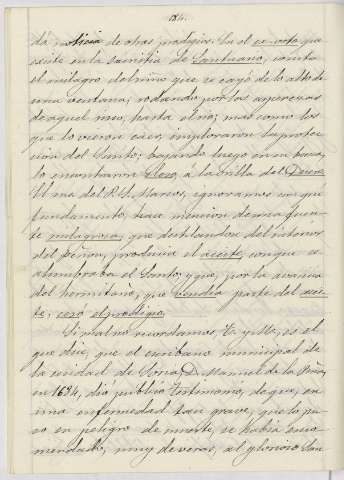 184.
dá noticia de otros prodigios. En el ex-voto que
existe en la sacristía de Santuario, consta
el milagro del niño que se cayó de lo alto de
una ventana, rodando por las asperezas
de aquel risco, hasta el río; mas como los
que lo vieron caer, imploraron la protec-
cion del Santo; bajando luego en su busca,
lo encontraron ileso, á la orilla del Duero.
El ms. del P. S. Marcos, ignoramos con qué
fundamento, hace mencion de una fuen-
te milagrosa, que destilandose del interior
del peñon, producia el aceite, con que se
alumbraba el Santo; y que, por la avaricia
del hermitaño, que vendia parte del acei-
te, cesó el prodigio.
Si mal no recordamos, es el
que dice, que el escribano municipal de
la ciudad de Soria, D. Manuel de la Peña,
en 1634, dió público testimonio, de que, en
una enfermedad tan grave, que lo pu-
so en peligro de muerte, se habia enco-
mendado, muy de veras, al glorioso San